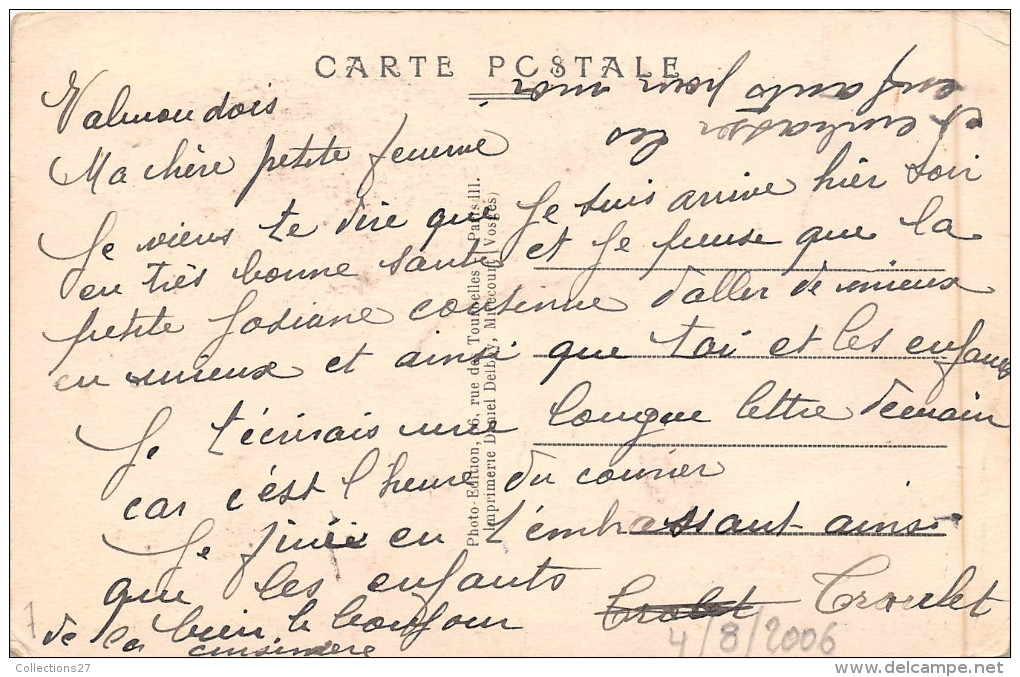 CARTE POSTALE
Valmondois
Ma chère petite femme
Je viens te dire que Je suis arrive hier soir
en très bonne santé et Je pense que la
petite Josiane continue d'aller de mieux
en mieux et ainsi que toi et les enfants
Je t'écrirais une longue lettre demain
car c'est l'heure du courier
Je finie en t'embrassant ainsi
que les enfants
bien le bonjour
de la cuisinière
Troulet
et embrasser les
enfants pour moi
Photo-Edition, rue des Tournelles - Paris III.
Imprimerie Daniel Delboy, Mirecourt (Vosges)
7
4/8/2006
Collections27